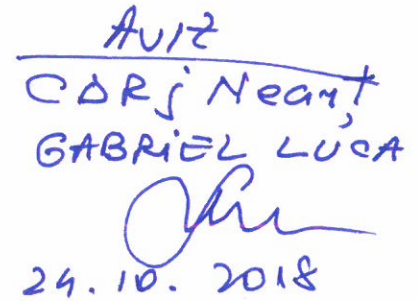 Aviz
CDRj Neamț
GABRiEL LUCA
24. 10. 2018